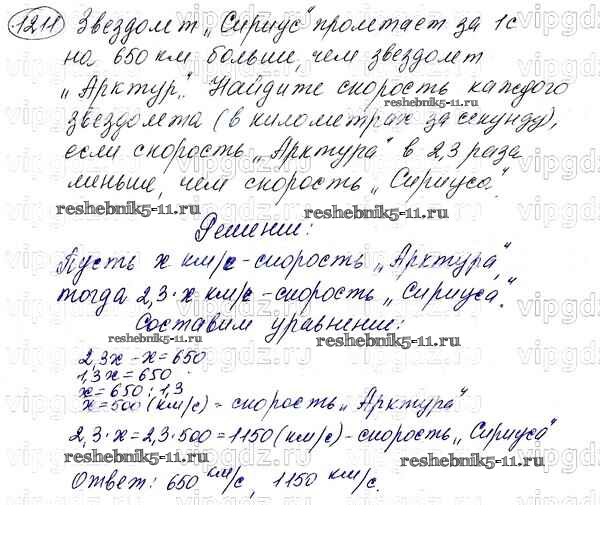 1211 Звездолет „Сириус" пролетает за 1с
на 650 км больше, чем звездолет
„Арктур". Найдите скорость каждого
reshebnik5-11.ru
звездолета (в километрах за секунду),
если скорость „Арктура" в 2,3 раза
меньше, чем скорость „Сириуса".
reshebnik5-11.ru reshebnik5-11.ru
Решение:
Пусть x км/с - скорость „Арктура",
тогда 2,3·x км/с - скорость „Сириуса".
Составим уравнение:
reshebnik5-11.ru reshebnik5-11.ru
2,3x - x = 650
1,3x = 650
x = 650 : 1,3
x = 500 (км/с) - скорость „Арктура"
2,3·x = 2,3·500 = 1150 (км/с) - скорость „Сириуса"
reshebnik5-11.ru reshebnik5-11.ru
Ответ: 650 км/с, 1150 км/с.